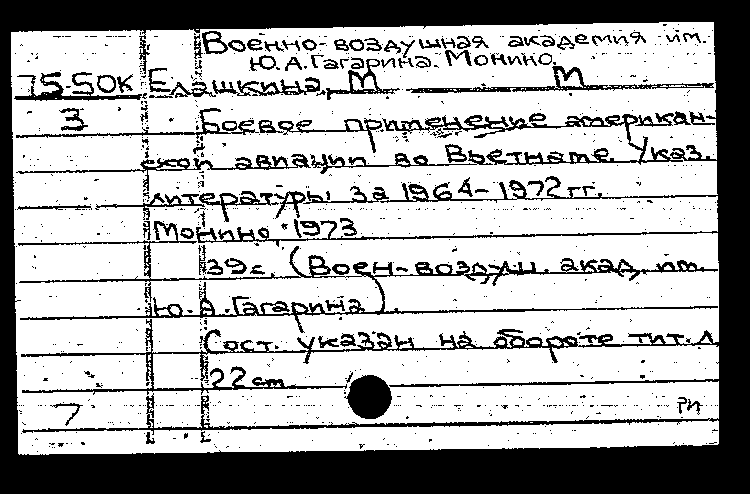 Военно-воздушная академия им.
Ю.А.Гагарина. Монино.
75-50К Елашкина, М m
3 Боевое применение американ-
ской авиации во Вьетнаме. Указ.
литературы за 1964-1972 гг.
Монино, 1973
39 с. (Воен-воздуш. акад. им.
Ю.А.Гагарина).
Сост. указан на обороте тит. л.
22 cm
7 РИ